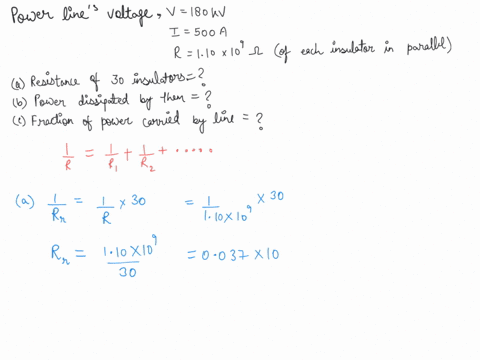 Power line's voltage, V = 180 kV
I = 500 A
R = 1.10 × 10⁹ Ω (of each insulator in parallel)
(a) Resistance of 30 insulators = ?
(b) Power dissipated by them = ?
(c) Fraction of power carried by line = ?
1/R = 1/R₁ + 1/R₂ + .....
(a) 1/Rᵣ = 1/R × 30 = 1/1.10×10⁹ × 30
Rᵣ = 1.10×10⁹/30 = 0.037 × 10